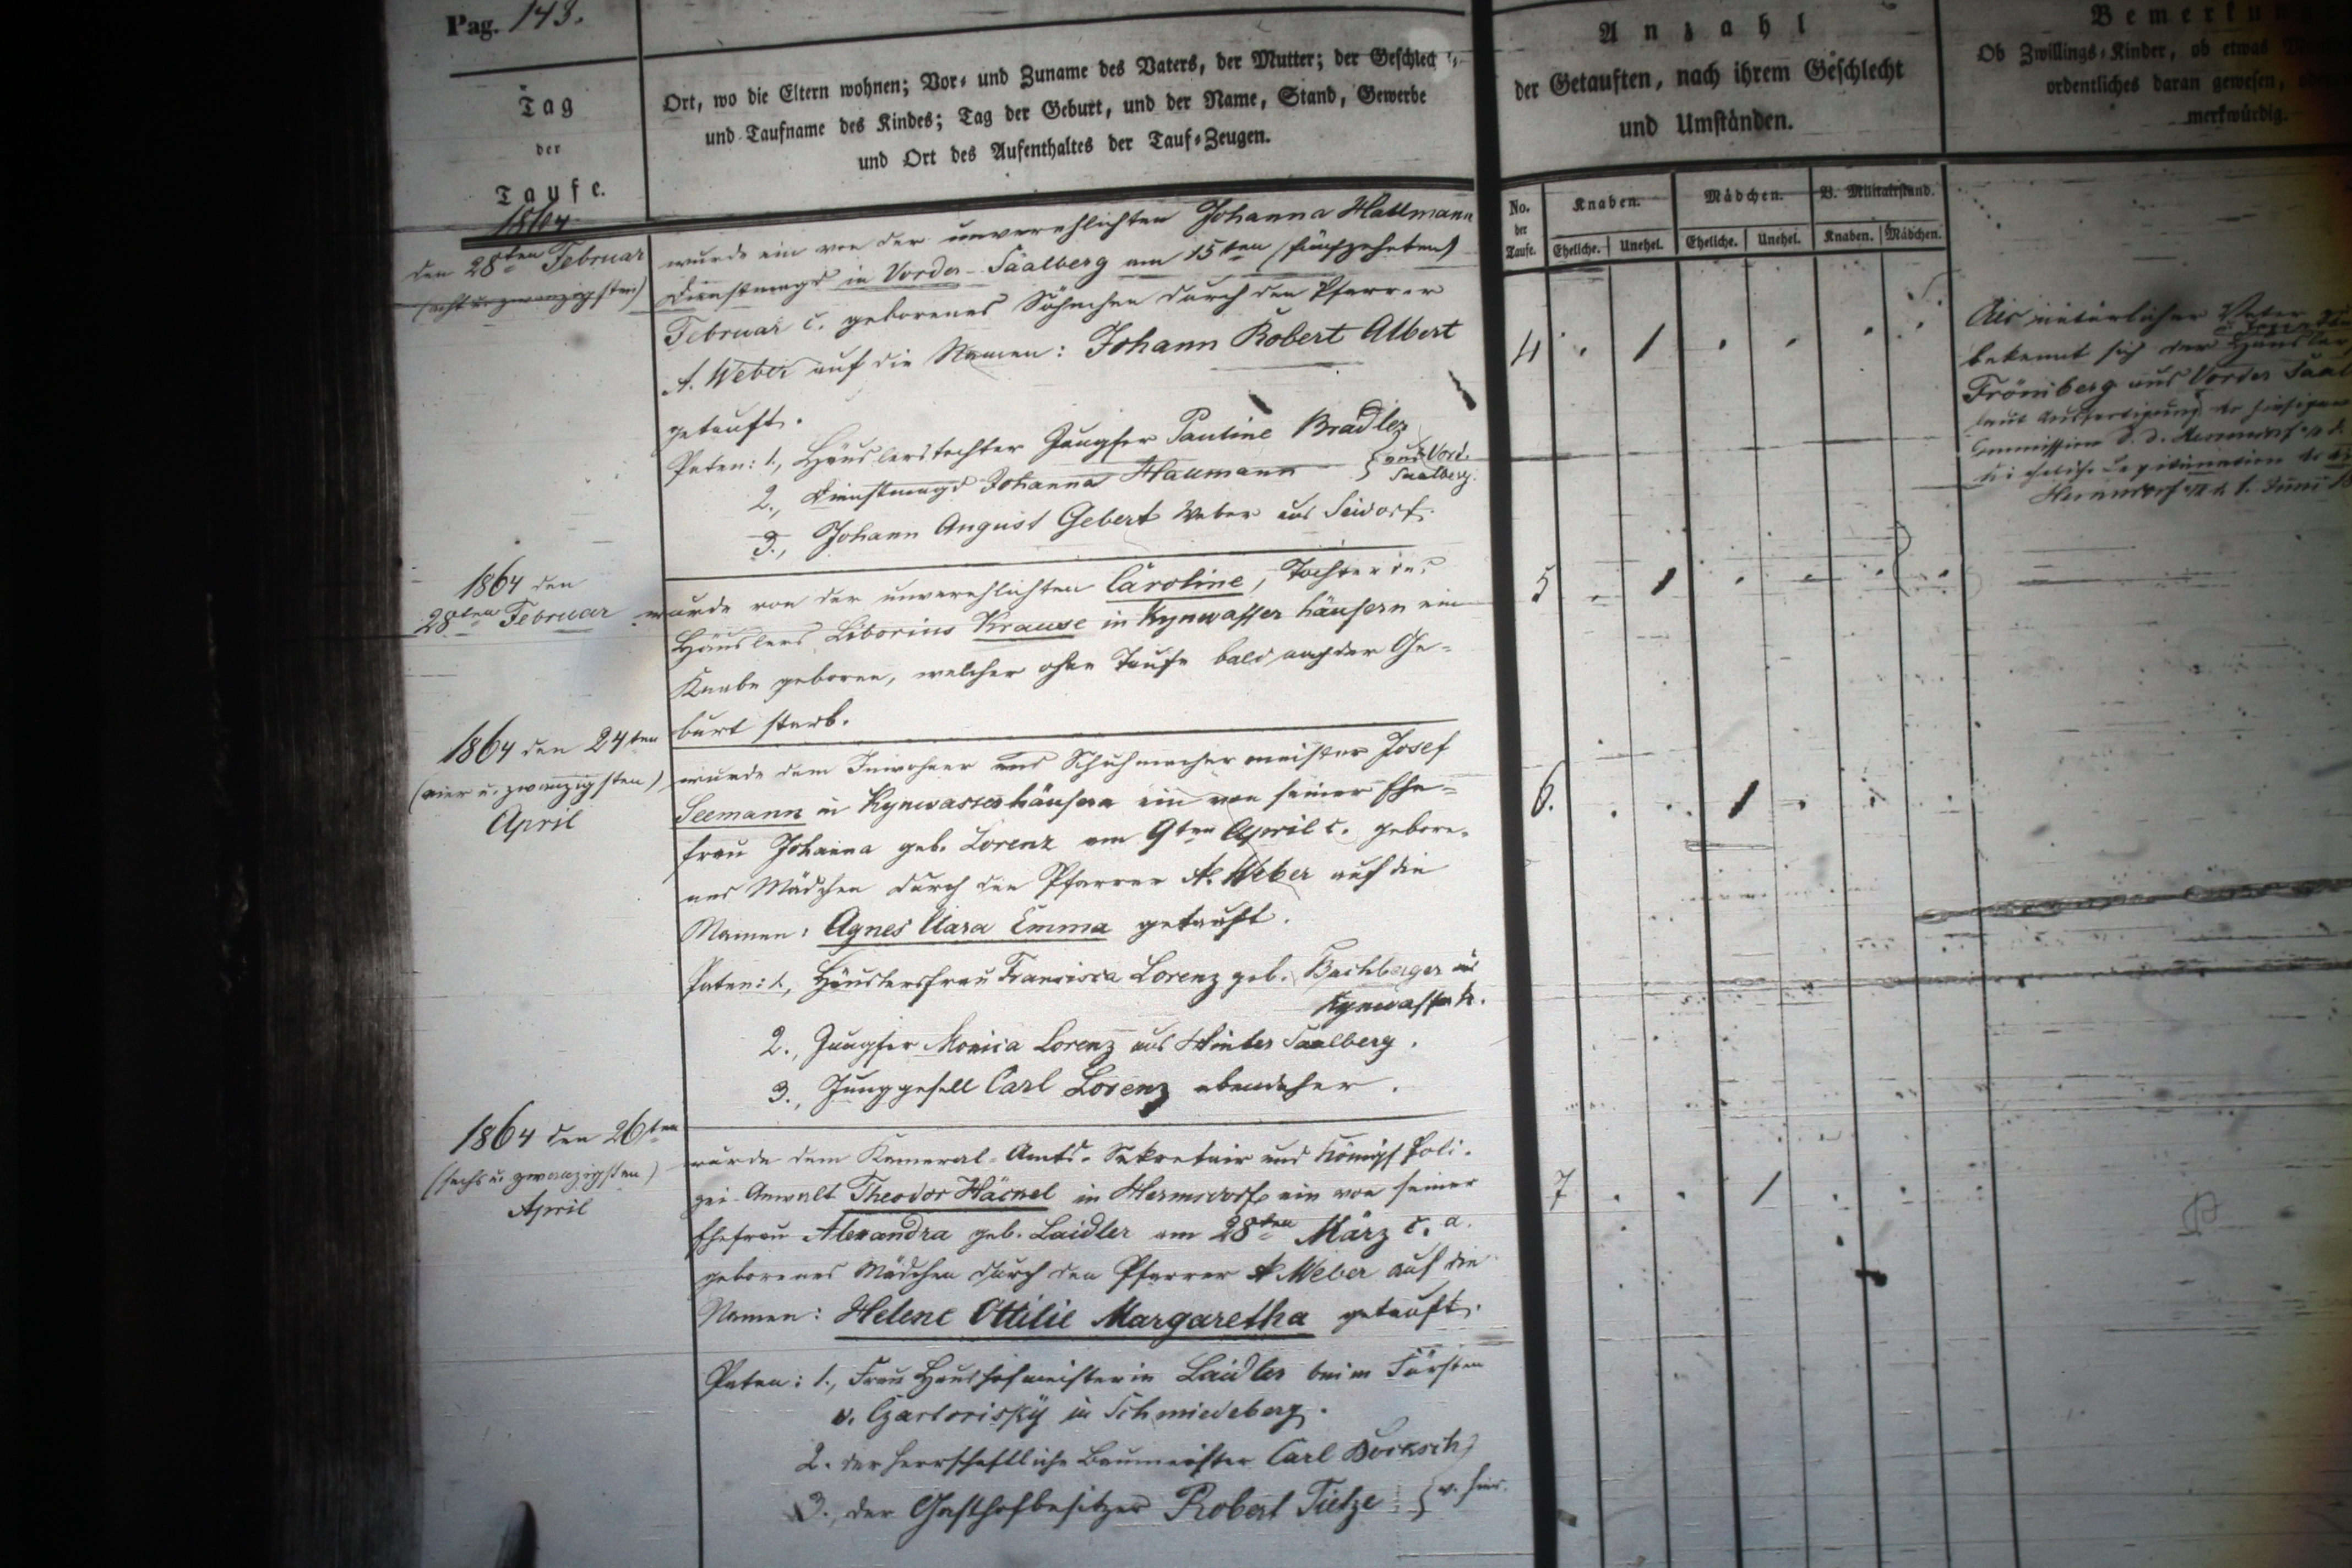 Pag. 143.
Tag
der
Taufe.
Ort, wo die Eltern wohnen; Vor- und Zuname des Vaters, der Mutter; der Geschlechts-
und Taufname des Kindes; Tag der Geburt, und der Name, Stand, Gewerbe
und Ort des Aufenthaltes der Tauf-Zeugen.
Anzahl
der Getauften, nach ihrem Geschlecht
und Umständen.
Ob Zwillings-Kinder, ob etwas
ordentliches daran gewesen,
merkwürdig.
No.
der
Taufe.
Knaben.
Mädchen.
B. Militairstand.
Eheliche. Unehel. Eheliche. Unehel. Knaben. Mädchen.
1864
den 28ten Februar
(acht u. zwanzigsten)
wurde ein von der unverehlichten Johanna
Dienstmagd in Vorder-Saalberg am 15ten (fünfzehnten)
Februar c. geborenes Söhnchen durch den Pfarrer
A. Weber auf die Namen: Johann Robert Albert
getauft.
Paten: 1., Häuslerstochter Jungfer Pauline Bradler
2., Dienstmagd Johanna
aus Vord.
Saalberg.
3., Johann August Gebert Weber aus Seidorf.
4
Als natürlicher Vater
bekennt sich der Häusler
Frömberg aus Vorder Saal
1. Juni
1864 den
28ten Februar
wurde von der unverehlichten Caroline, Tochter des
Häuslers Liborius Krause in Kynwasserhäusern ein
Knabe geboren, welcher ohne Taufe bald nach der Ge-
burt starb.
5
1864 den 24ten
(vier u. zwanzigsten)
April
wurde dem Inwohner und Schuhmachermeister Josef
Seemann in Kynwasserhäusern ein von seiner Ehe-
frau Johanna geb. Lorenz am 9ten April c. gebore-
nes Mädchen durch den Pfarrer A. Weber auf die
Namen: Agnes Clara Emma getauft.
Paten: 1., Häuslersfrau Francisca Lorenz geb. Bachberger aus
Kynwasserh.
2., Jungfer Monica Lorenz aus Hinter Saalberg.
3., Junggesell Carl Lorenz ebendaher.
6.
1864 den 26ten
(sechs u. zwanzigsten)
April
wurde dem Kameral-Amts-Sekretair und Königl. Poli-
zei-Anwalt Theodor Häckel in Hermsdorf ein von seiner
Ehefrau Alexandra geb. Laidler am 28ten März c. a.
geborenes Mädchen durch den Pfarrer A. Weber auf die
Namen: Helene Ottilie Margaretha getauft.
Paten: 1., Frau Haushofmeisterin Laidler beim Fürsten
v. Czartorisky in Schmiedeberg.
2. der herrschaftliche Baumeister Carl
3., der Gasthofbesitzer Robert Tietze
v. hier.
7